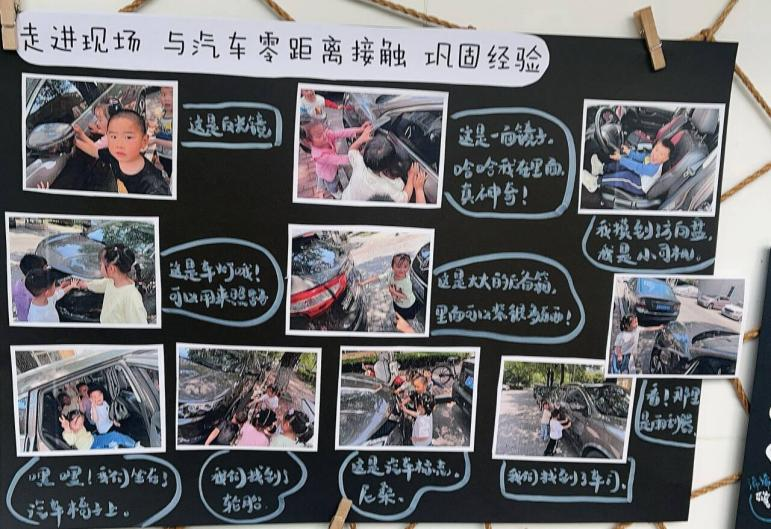 走进现场 与汽车零距离接触 巩固经验
这是反光镜
这是一面镜子，
哈哈我在里面，
真神奇！
我摸到方向盘，
我是小司机。
这是车灯哦！
可以用来照路
这是大大的后备箱，
里面可以装很多东西！
看！那里
是雨刮器
嘿嘿！我们坐在了
汽车椅子上。
我们找到了
轮胎.
这是汽车标志。
我们找到了车门、